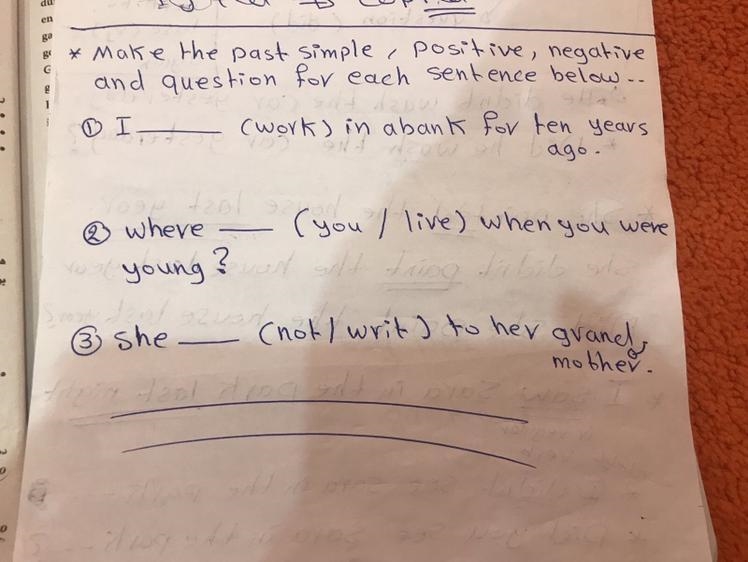 * Make the past simple, positive, negative
and question for each sentence below..
① I ______ (work) in a bank for ten years
ago.
② where ____ (you / live) when you were
young?
③ she ____ (not / writ) to her grand
mother.